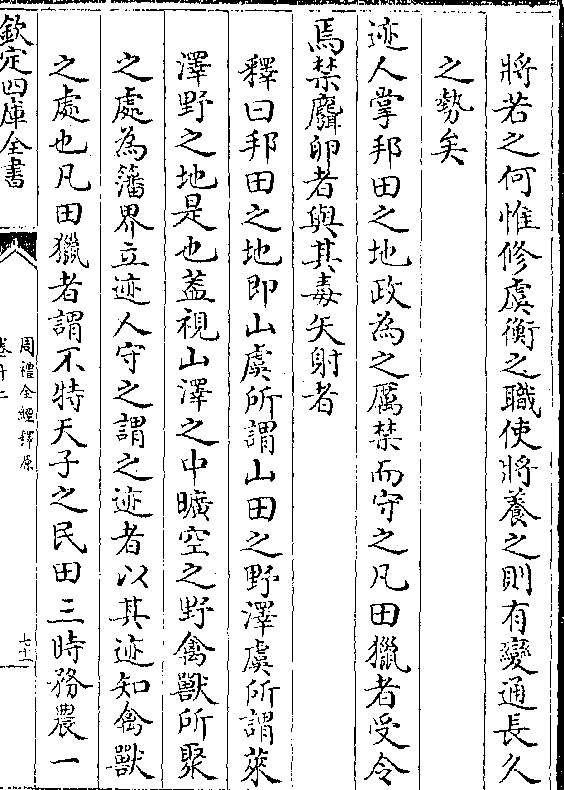 將若之何惟修虞衡之職使將養之則有變通長久
之勢矣
迹人掌邦田之地政為之厲禁而守之凡田獵者受令
焉禁麛卵者與其毒矢射者
釋曰邦田之地即山虞所謂山田之野澤虞所謂萊
澤野之地是也蓋視山澤之中曠空之野禽獸所聚
之處為藩界立迹人守之謂之迹者以其迹知禽獸
之處也凡田獵者謂不特天子之民田三時務農一
欽定四庫全書
周禮全經釋原